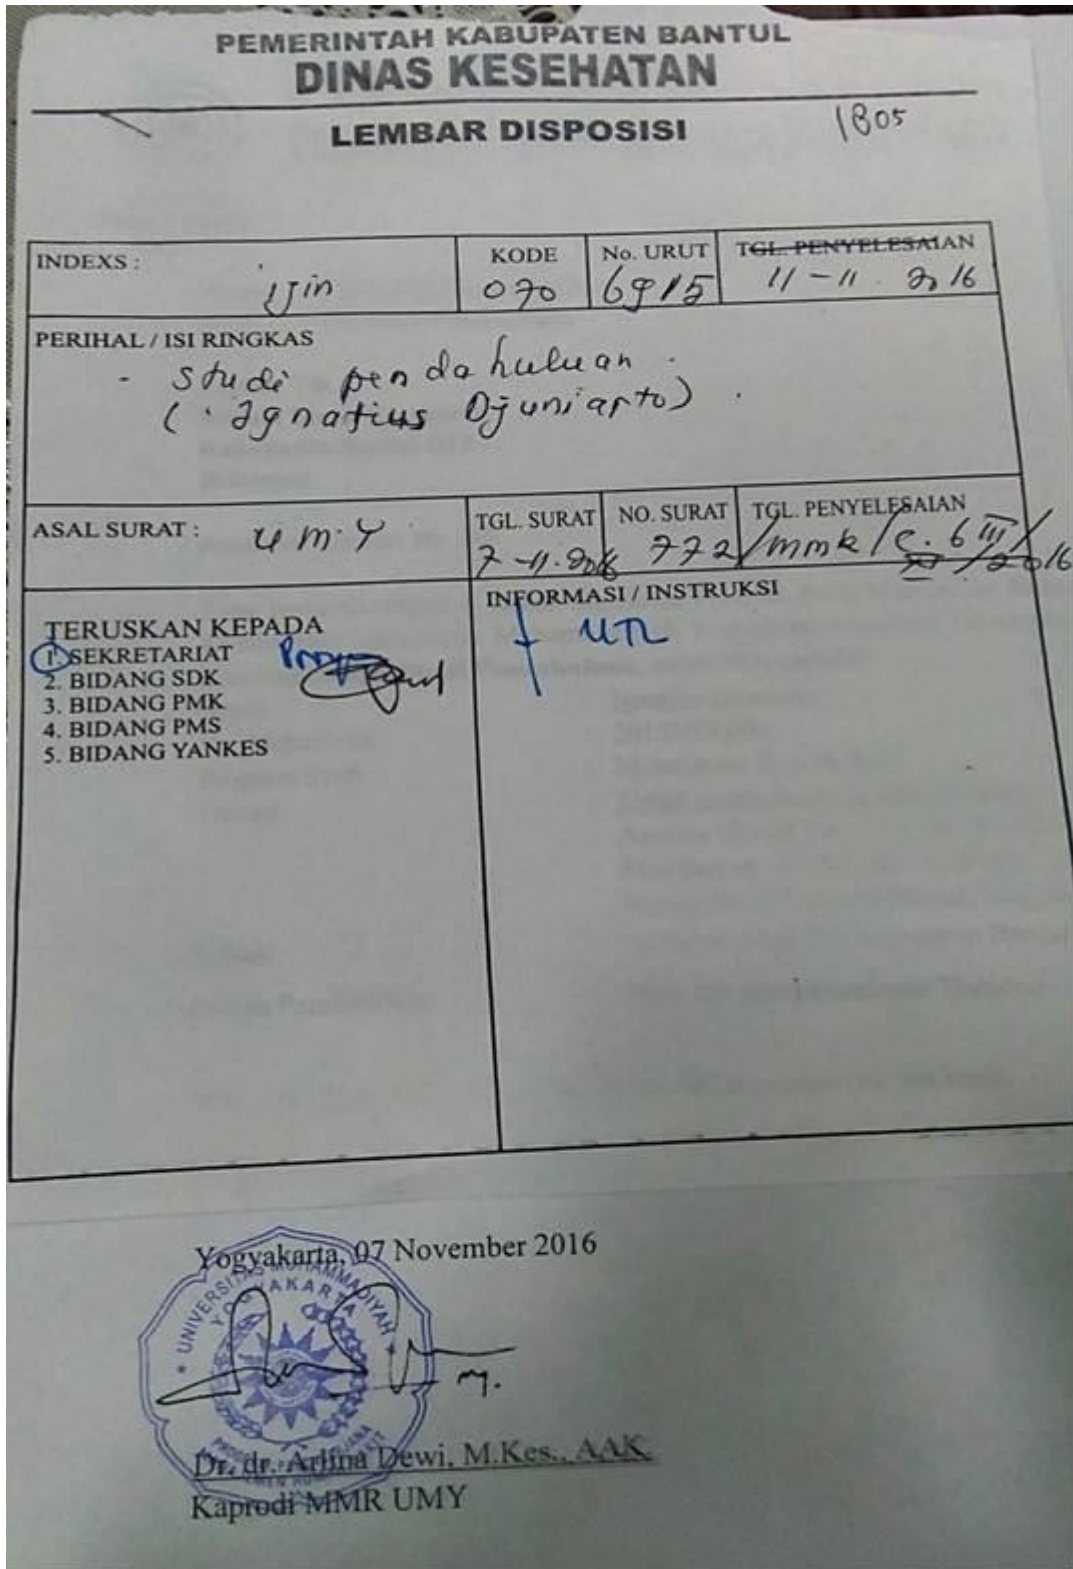 PEMERINTAH KABUPATEN BANTUL
DINAS KESEHATAN
LEMBAR DISPOSISI
1805
INDEXS :
ijin
KODE
070
No. URUT
6915
TGL. PENYELESAIAN
11-11. 2016
PERIHAL / ISI RINGKAS
- Studi pendahuluan.
(Ignatius Djuniarto).
ASAL SURAT :
UM.Y
TGL. SURAT
7-11-2016
NO. SURAT
TGL. PENYELESAIAN
772/mmk/C.6 III/
/2016
TERUSKAN KEPADA
1. SEKRETARIAT
2. BIDANG SDK
3. BIDANG PMK
4. BIDANG PMS
5. BIDANG YANKES
INFORMASI / INSTRUKSI
UTL
Yogyakarta, 07 November 2016
UNIVERSITAS MUHAMMADIYAH
YOGYAKARTA
Dr. dr. Arlina Dewi, M.Kes., AAK
Kaprodi MMR UMY